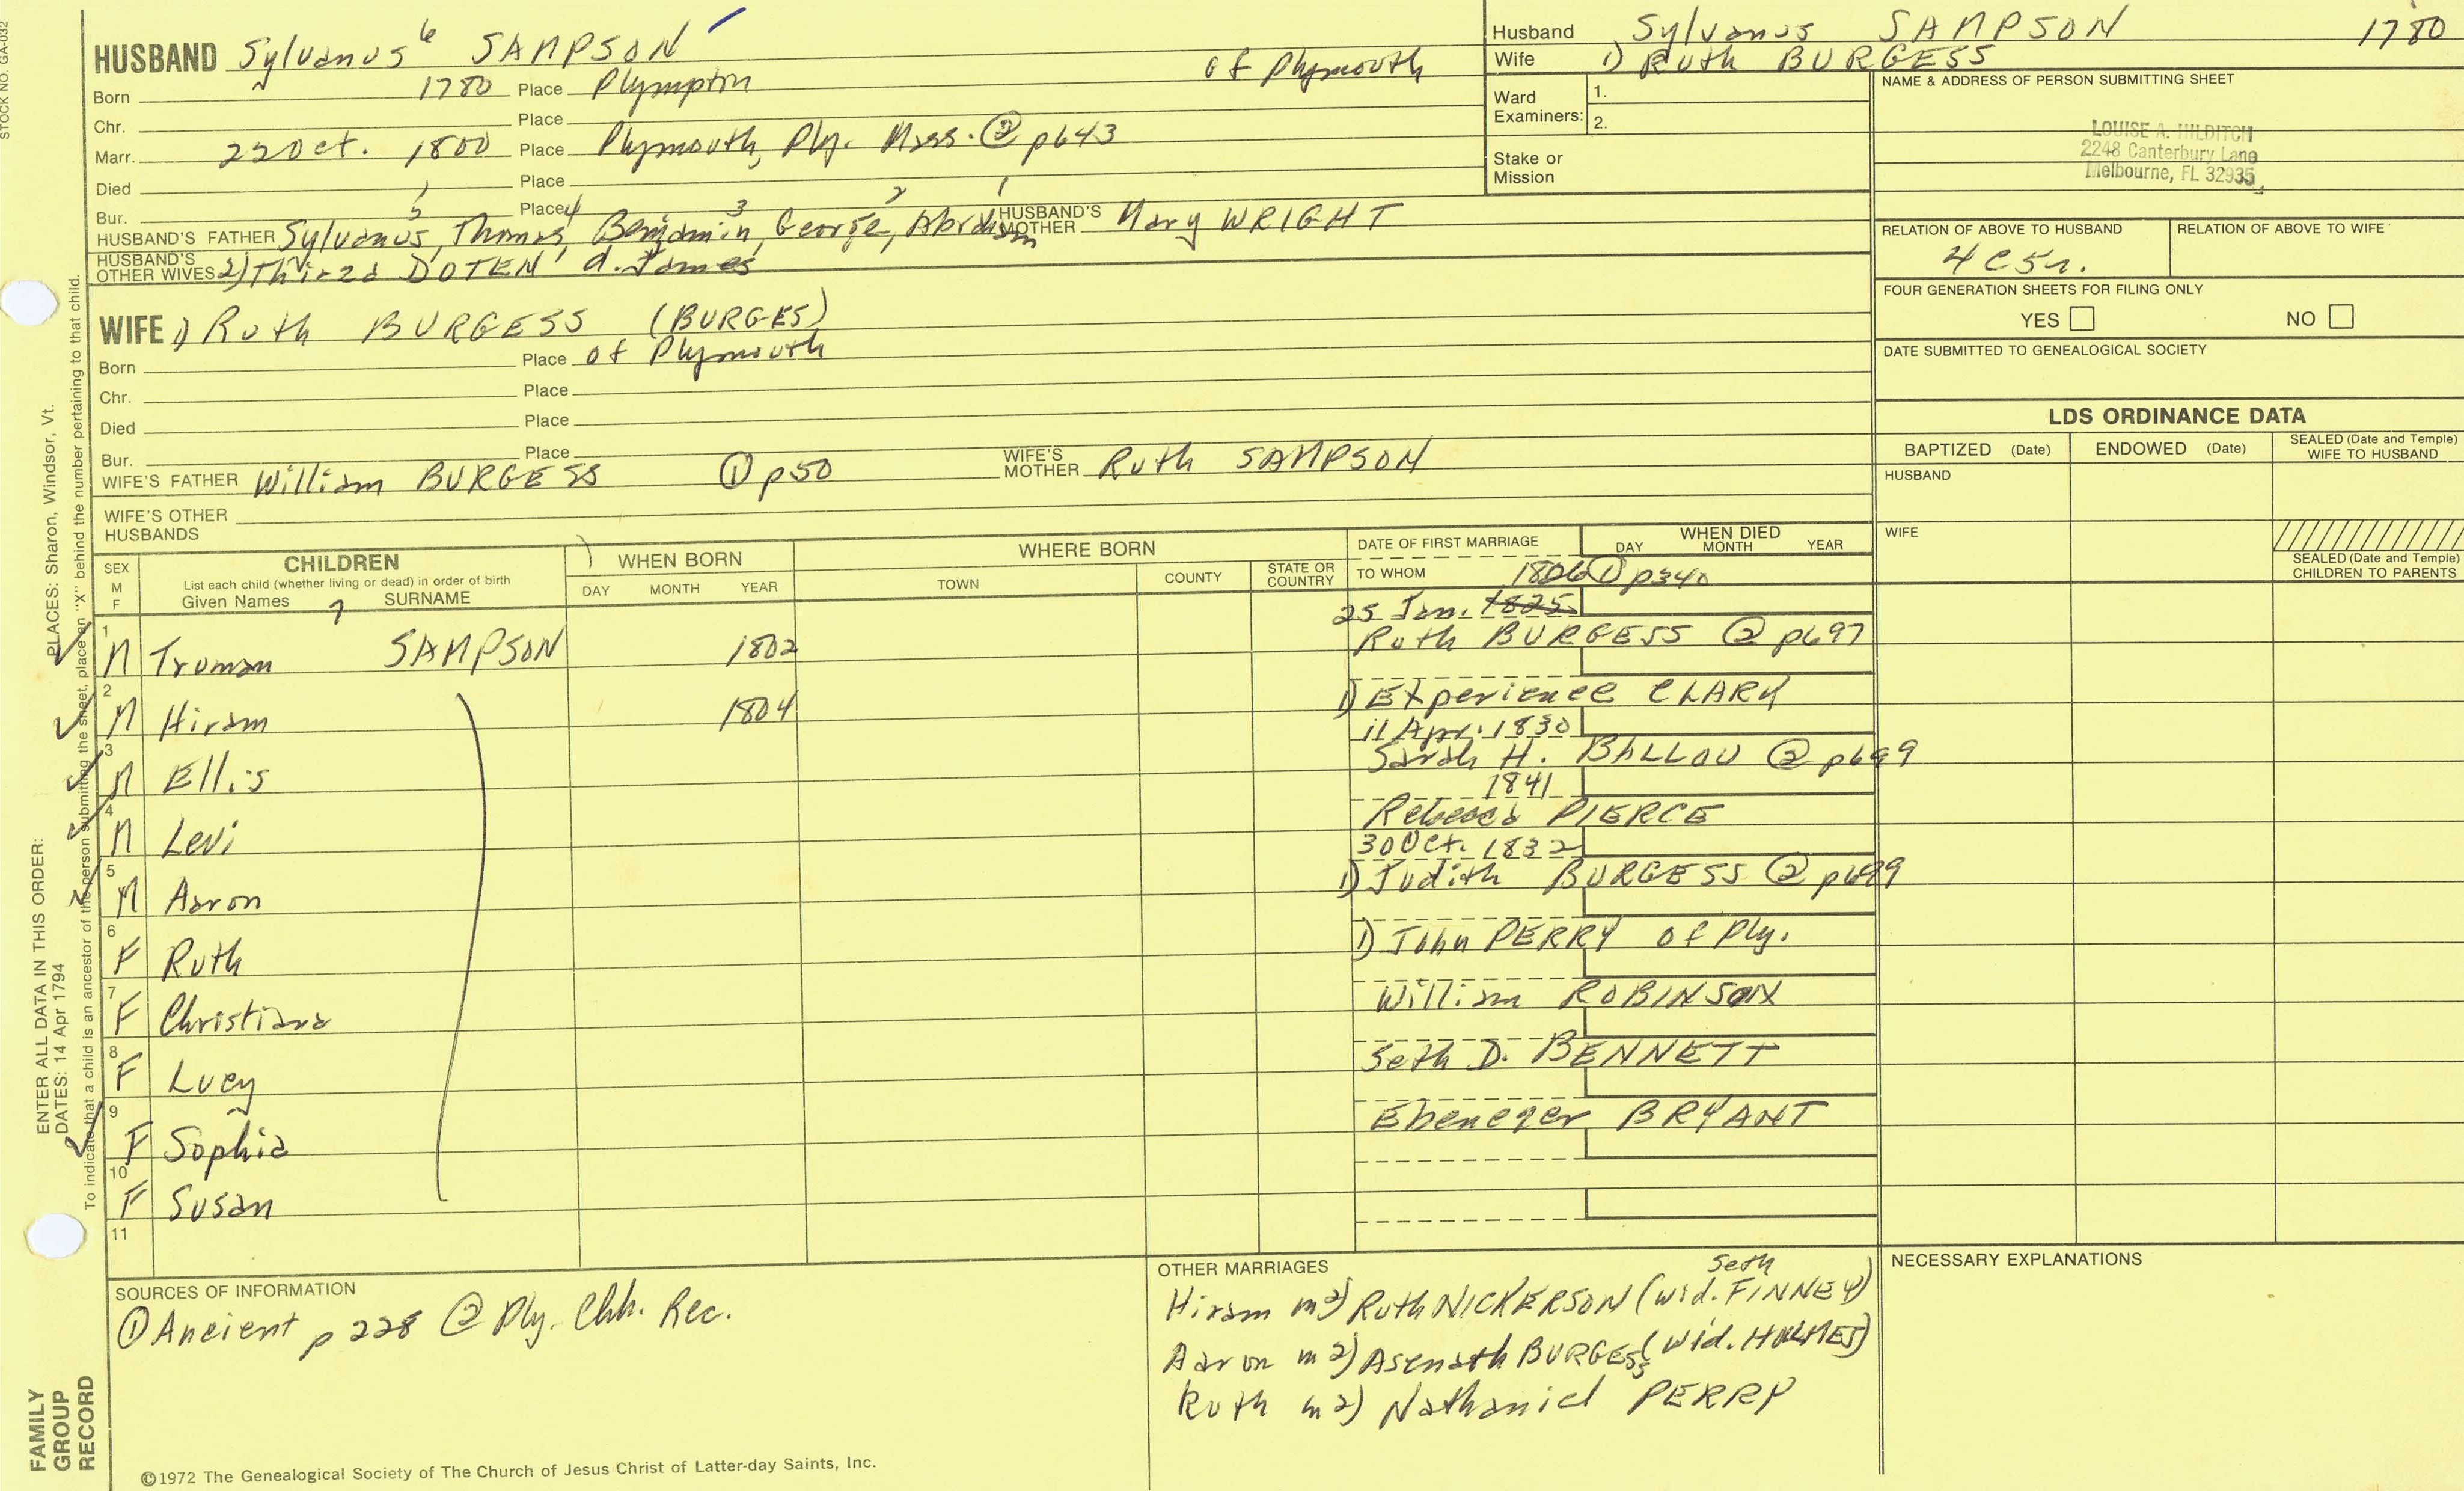 STOCK NO. GA-032
HUSBAND Sylvanus 6 SAMPSON
of Plymouth
Born 1780 Place Plympton
Chr. Place
Marr. 22 Oct. 1800 Place Plymouth, Ply. Mass. ② p643
Died Place
Bur. Place
HUSBAND'S FATHER Sylvanus 5, Thomas 4, Benjamin 3, George 2, Abraham 1 HUSBAND'S MOTHER Mary WRIGHT
HUSBAND'S OTHER WIVES 2) Thirza DOTEN d. James
WIFE 1) Ruth BURGESS (BURGES)
Born Place of Plymouth
Chr. Place
Died Place
Bur. Place
WIFE'S FATHER William BURGESS ① p50 WIFE'S MOTHER Ruth SAMPSON
WIFE'S OTHER HUSBANDS
Husband Sylvanus SAMPSON 1780
Wife 1) Ruth BURGESS
Ward Examiners: 1.
2.
Stake or Mission
NAME & ADDRESS OF PERSON SUBMITTING SHEET
LOUISE A. HILDITCH
2248 Canterbury Lane
Melbourne, FL 32935
RELATION OF ABOVE TO HUSBAND RELATION OF ABOVE TO WIFE
4C5r.
FOUR GENERATION SHEETS FOR FILING ONLY
YES NO
DATE SUBMITTED TO GENEALOGICAL SOCIETY
LDS ORDINANCE DATA
BAPTIZED (Date) ENDOWED (Date) SEALED (Date and Temple) WIFE TO HUSBAND
HUSBAND
WIFE
SEALED (Date and Temple) CHILDREN TO PARENTS
SEX M F CHILDREN List each child (whether living or dead) in order of birth Given Names SURNAME
WHEN BORN DAY MONTH YEAR
WHERE BORN TOWN COUNTY STATE OR COUNTRY
DATE OF FIRST MARRIAGE TO WHOM
WHEN DIED DAY MONTH YEAR
1806 ① p340
25 Jan. 1825
1 M Truman SAMPSON 1802 Ruth BURGESS ② p697
2 M Hiram 1804 1) Experience CLARK
11 Apr. 1830
3 M Ellis Sarah H. BALLOU ② p699
1841
4 M Levi Rebecca PIERCE
30 Oct. 1832
5 M Aaron 1) Judith BURGESS ② p699
6 F Ruth 1) John PERRY of Ply.
7 F Christiana William ROBINSON
8 F Lucy Seth D. BENNETT
9 F Sophia Ebenezer BRYANT
10 F Susan
11
SOURCES OF INFORMATION
① Ancient p 228 ② Ply. Chh. Rec.
OTHER MARRIAGES
Seth
Hiram m2) Ruth NICKERSON (wid. FINNEY)
Aaron m2) Asenath BURGESS (wid. HOLMES)
Ruth m2) Nathaniel PERRY
NECESSARY EXPLANATIONS
©1972 The Genealogical Society of The Church of Jesus Christ of Latter-day Saints, Inc.
FAMILY GROUP RECORD
ENTER ALL DATA IN THIS ORDER:
DATES: 14 Apr 1794
PLACES: Sharon, Windsor, Vt.
To indicate that a child is an ancestor of the person submitting the sheet, place an "X" behind the number pertaining to that child.